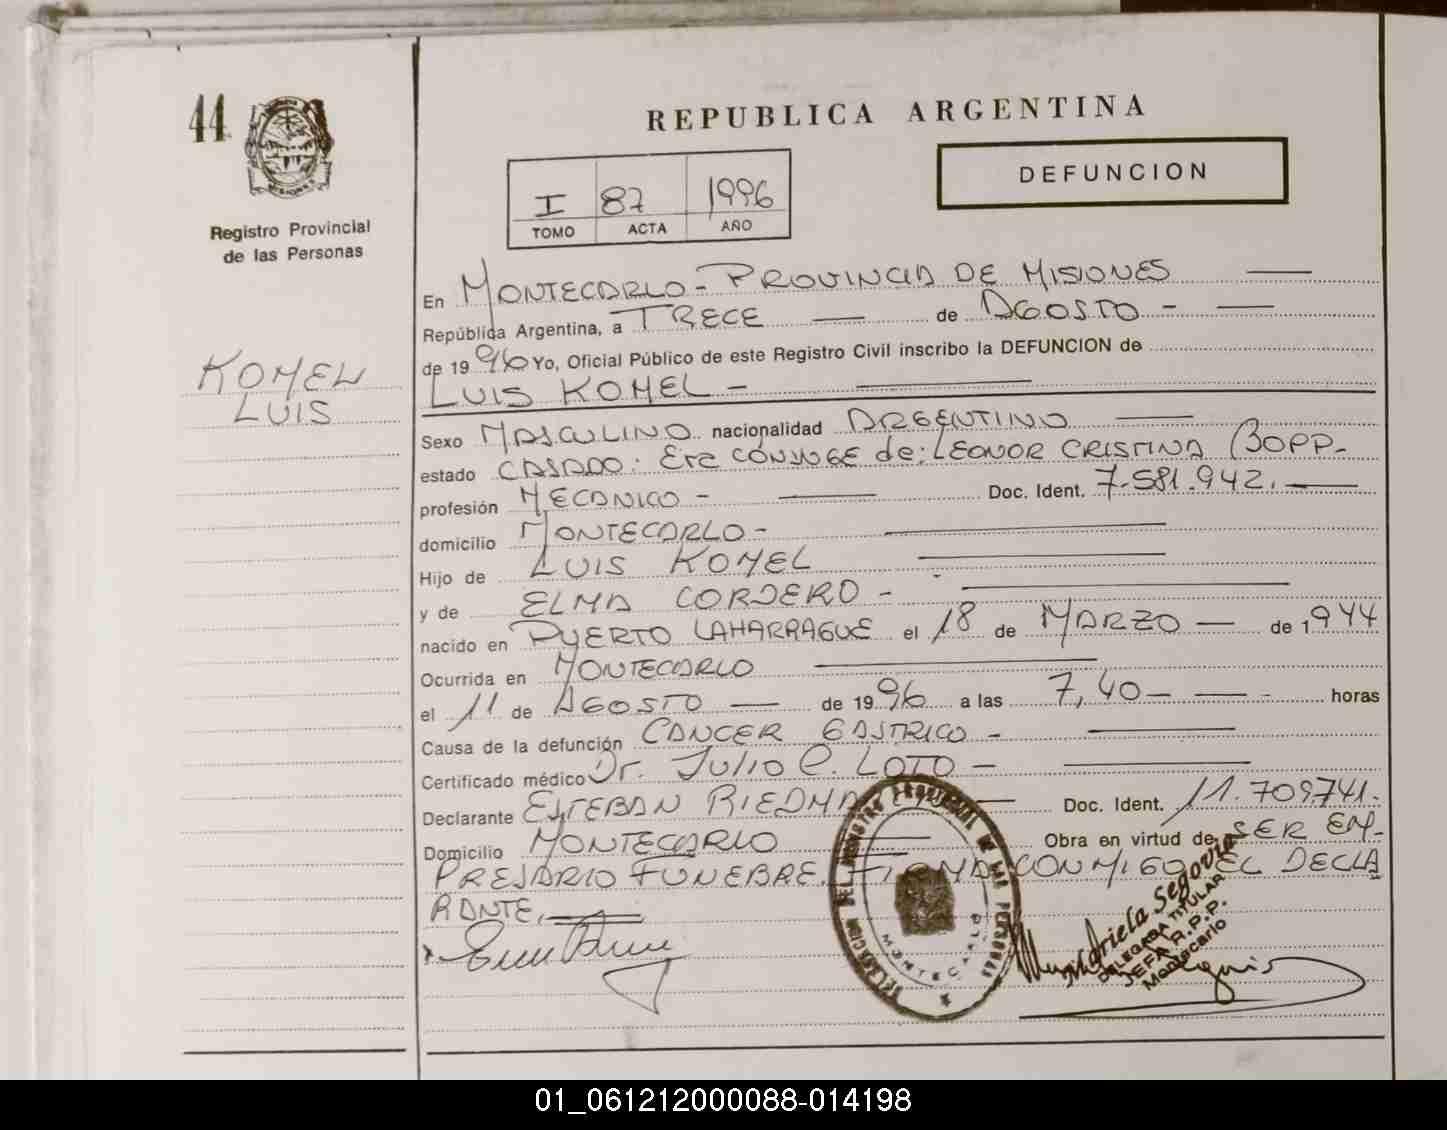 44
REPUBLICA ARGENTINA
DEFUNCION
I 87 1996
TOMO ACTA AÑO
MISIONES
Registro Provincial
de las Personas
KOMEL
LUIS
En MONTECARLO - PROVINCIA DE MISIONES
República Argentina, a TRECE de AGOSTO -
de 1996 Yo, Oficial Público de este Registro Civil inscribo la DEFUNCION de
LUIS KOMEL -
Sexo MASCULINO nacionalidad ARGENTINO
estado CASADO: Era CONYUGE de: LEONOR CRISTINA BOPP-
profesión MECANICO - Doc. Ident. 7.581.942.
domicilio MONTECARLO -
Hijo de LUIS KOMEL
y de ELMA CORDERO -
nacido en PUERTO LAHARRAGUE el 18 de MARZO de 1944
Ocurrida en MONTECARLO
el 11 de AGOSTO de 1996 a las 7,40 - horas
Causa de la defunción CANCER GASTRICO -
Certificado médico Dr. JULIO C. LOTO -
Declarante ESTEBAN Doc. Ident. 11.709.741.
Domicilio MONTECARLO Obra en virtud de SER EM-
PRESARIO FUNEBRE. FIRMA CONMIGO EL DECLA
RANTE.
DELEGACION DEL REGISTRO PROVINCIAL DE LAS PERSONAS
MONTECARLO
Segovia
DELEGADA TITULAR
JEFA R.P.P.
Montecarlo
01_061212000088-014198